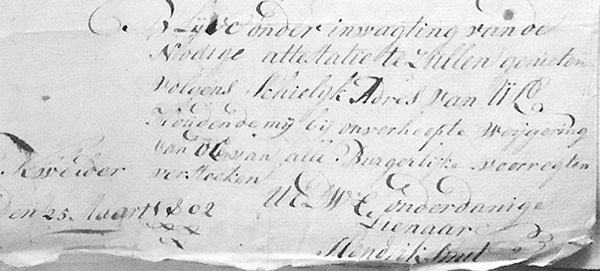 Blijve onder inwagting van de
Nodige attestatie te zullen genieten
volgens Schielijk Adres van UE
Houdende mij bij onverhoopte weijgering
van alle Burgerlijke voorregten
versteeken
UEDW onderdanige
Dienaar
den 25 Maart 1802
Hendrik Smit